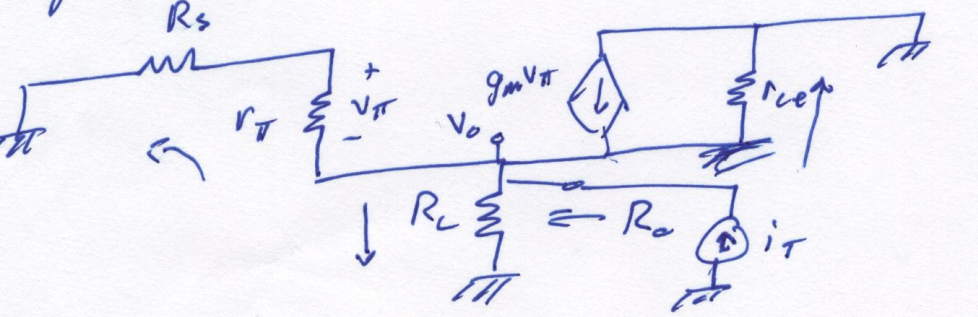 Rs
rπ
+
vπ
-
gmvπ
rce
vo
RL
Ro
iT